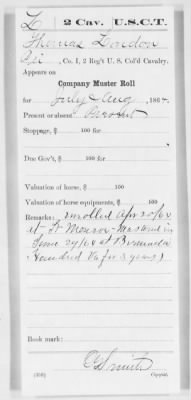 L | 2 Cav. | U.S.C.T.
Thomas London
Pvt, Co. I, 2 Reg't U. S. Col'd Cavalry.
Appears on
Company Muster Roll
for July & Aug, 1864.
Present or absent Present
Stoppage, $ 100 for
Due Gov't, $ 100 for
Valuation of horse, $ 100
Valuation of horse equipments, $ 100
Remarks: Enrolled Apr 20/64
at Ft Monroe. Mustered in
June 29/64 at Bermuda
Hundred Va for 3 years
Book mark:
Smith
(359) Copyist.